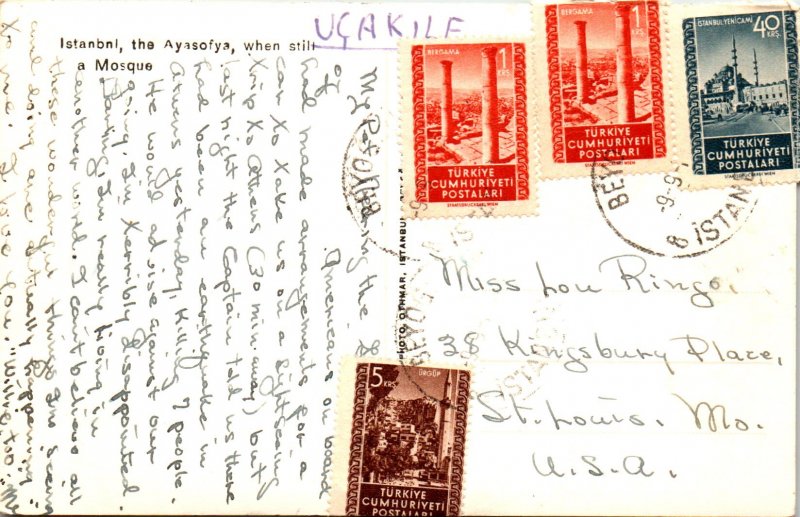 UÇAK İLE
Istanbnl, the Ayasofya, when still
a Mosque
BERGAMA
1
KRŞ.
TÜRKİYE
CUMHURİYETİ
POSTALARI
STAATSDRUCKEREI WIEN
BERGAMA
1
KRŞ.
TÜRKİYE
CUMHURİYETİ
POSTALARI
STAATSDRUCKEREI WIEN
İSTANBUL YENİCAMİ
40
KRŞ.
TÜRKİYE
CUMHURİYETİ
POSTALARI
5
KRŞ.
ÜRGÜP
TÜRKİYE
CUMHURİYETİ
POSTALARI
PHOTO, OTHMAR, ISTANBUL
My Pet,
of Americans on board
had made arrangements for a
car to take us on a sightseeing
trip to Athens (30 min. away) but
last night the Captain told us there
had been an earthquake in
Athens yesterday, killing 7 people.
He would advise against our
going. I'm terribly disappointed.
Darling, I'm really living in
another world. I can't believe all
these wonderful things I'm seeing
and doing are actually happening
to me. I love you,
Miss Lou Ringo.
38 Kingsbury Place,
St. Louis. Mo.
U.S.A.